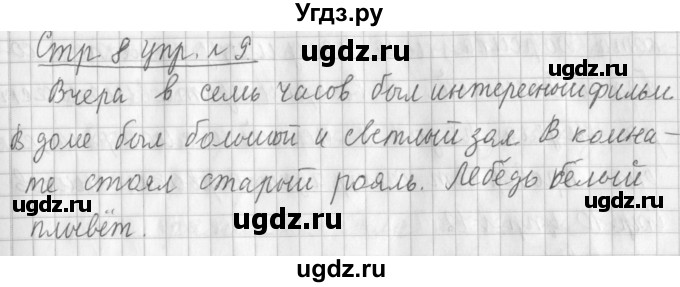 Угдз.ру
Стр. 8 упр. № 9.
ugdz.ru ugdz.ru
Вчера в семь часов был интересный фильм
ugdz.ru
В доме был большой и светлый зал В комна-
те стоял старый рояль. Лебедь белый
ugdz.ru ugdz.ru
ugdz.ru
плывёт.
ugdz.ru